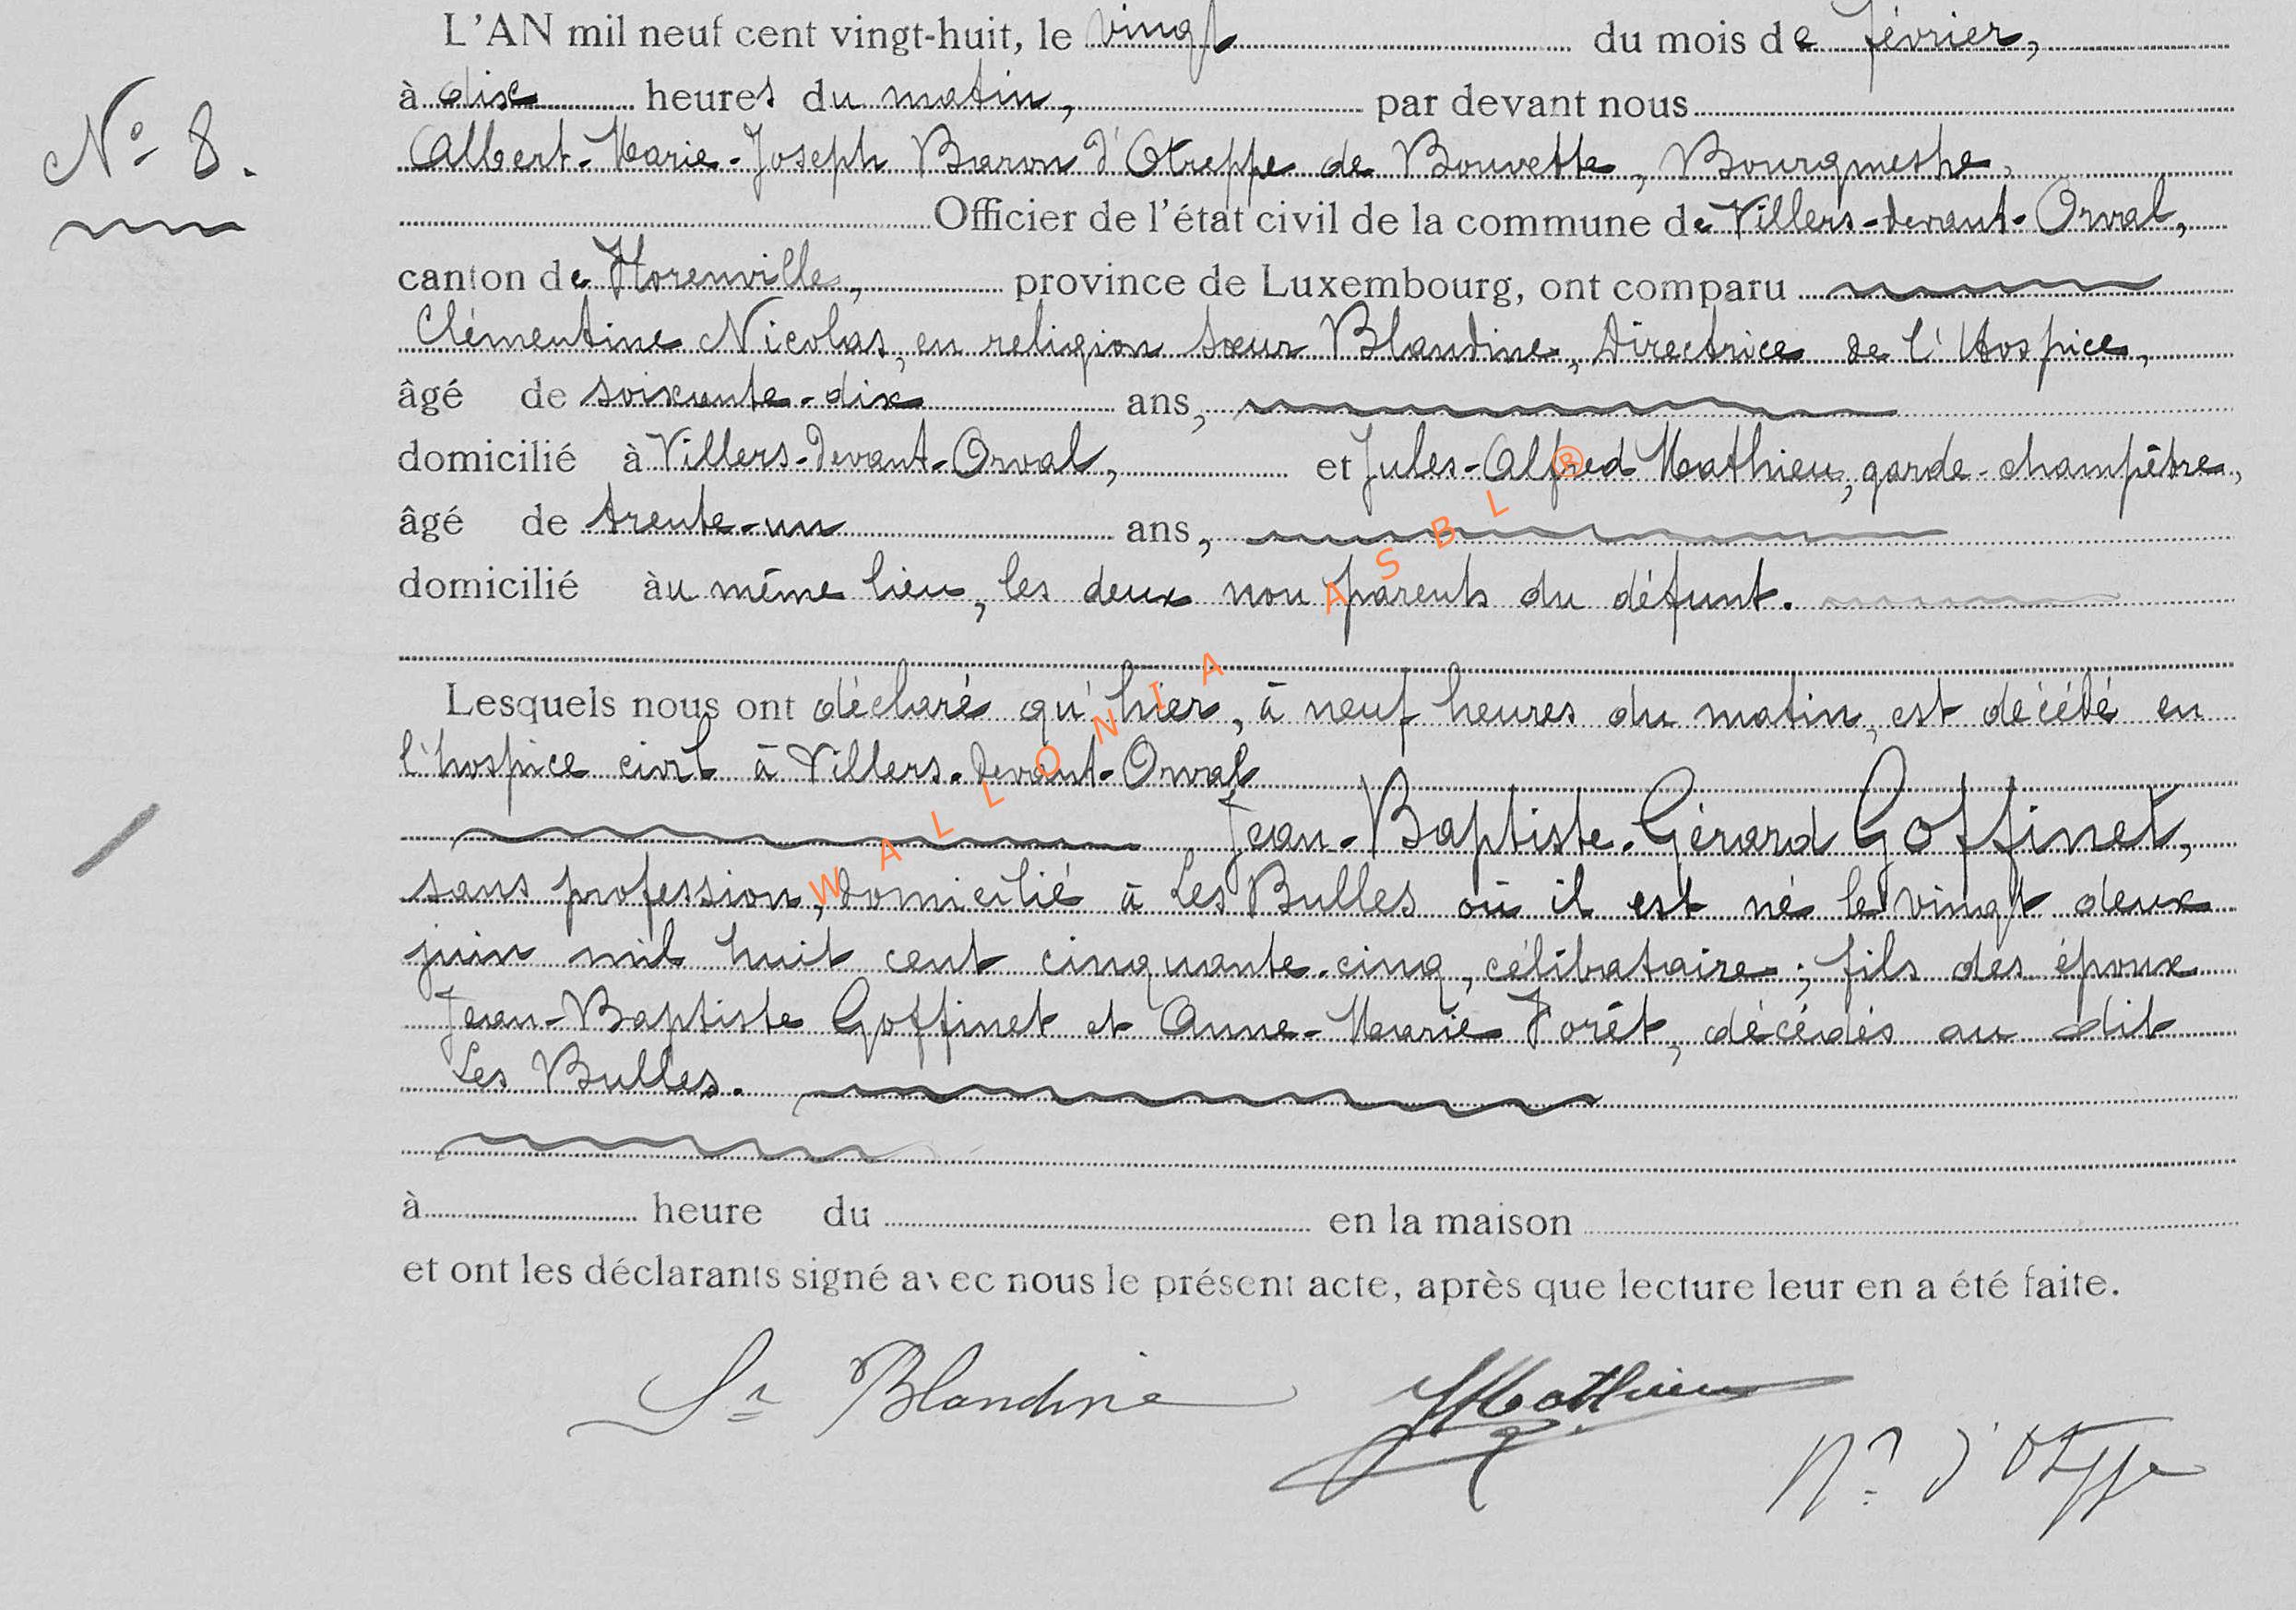 L'AN mil neuf cent vingt-huit, le vingt du mois de février,
N° 8.
à dix heures du matin, par devant nous
Albert-Marie-Joseph Baron d'Otreppe de Bouvette, Bourgmestre,
Officier de l'état civil de la commune de Villers-devant-Orval,
canton de Florenville, province de Luxembourg, ont comparu
Clémentine Nicolas, en religion sœur Blandine, Directrice de l'Hospice,
âgé de soixante-dix ans,
domicilié à Villers-devant-Orval, et Jules-Alfred Mathieu, garde-champêtre,
âgé de trente-un ans,
domicilié àu même lieu, les deux non parents du défunt.
Lesquels nous ont déclaré qu'hier, à neuf heures du matin, est décédé en
l'hospice civil à Villers-devant-Orval
Jean-Baptiste-Gérard Goffinet,
sans profession, domicilié à Les Bulles où il est né le vingt deux
juin mil huit cent cinquante-cinq, célibataire; fils des époux
Jean-Baptiste Goffinet et Anne-Marie Forêt, décédés au dit
Les Bulles.
à heure du en la maison
et ont les déclarants signé avec nous le présent acte, après que lecture leur en a été faite.
Sr Blandine JMathieu d'Otreppe
WALLONIA ASBL ®